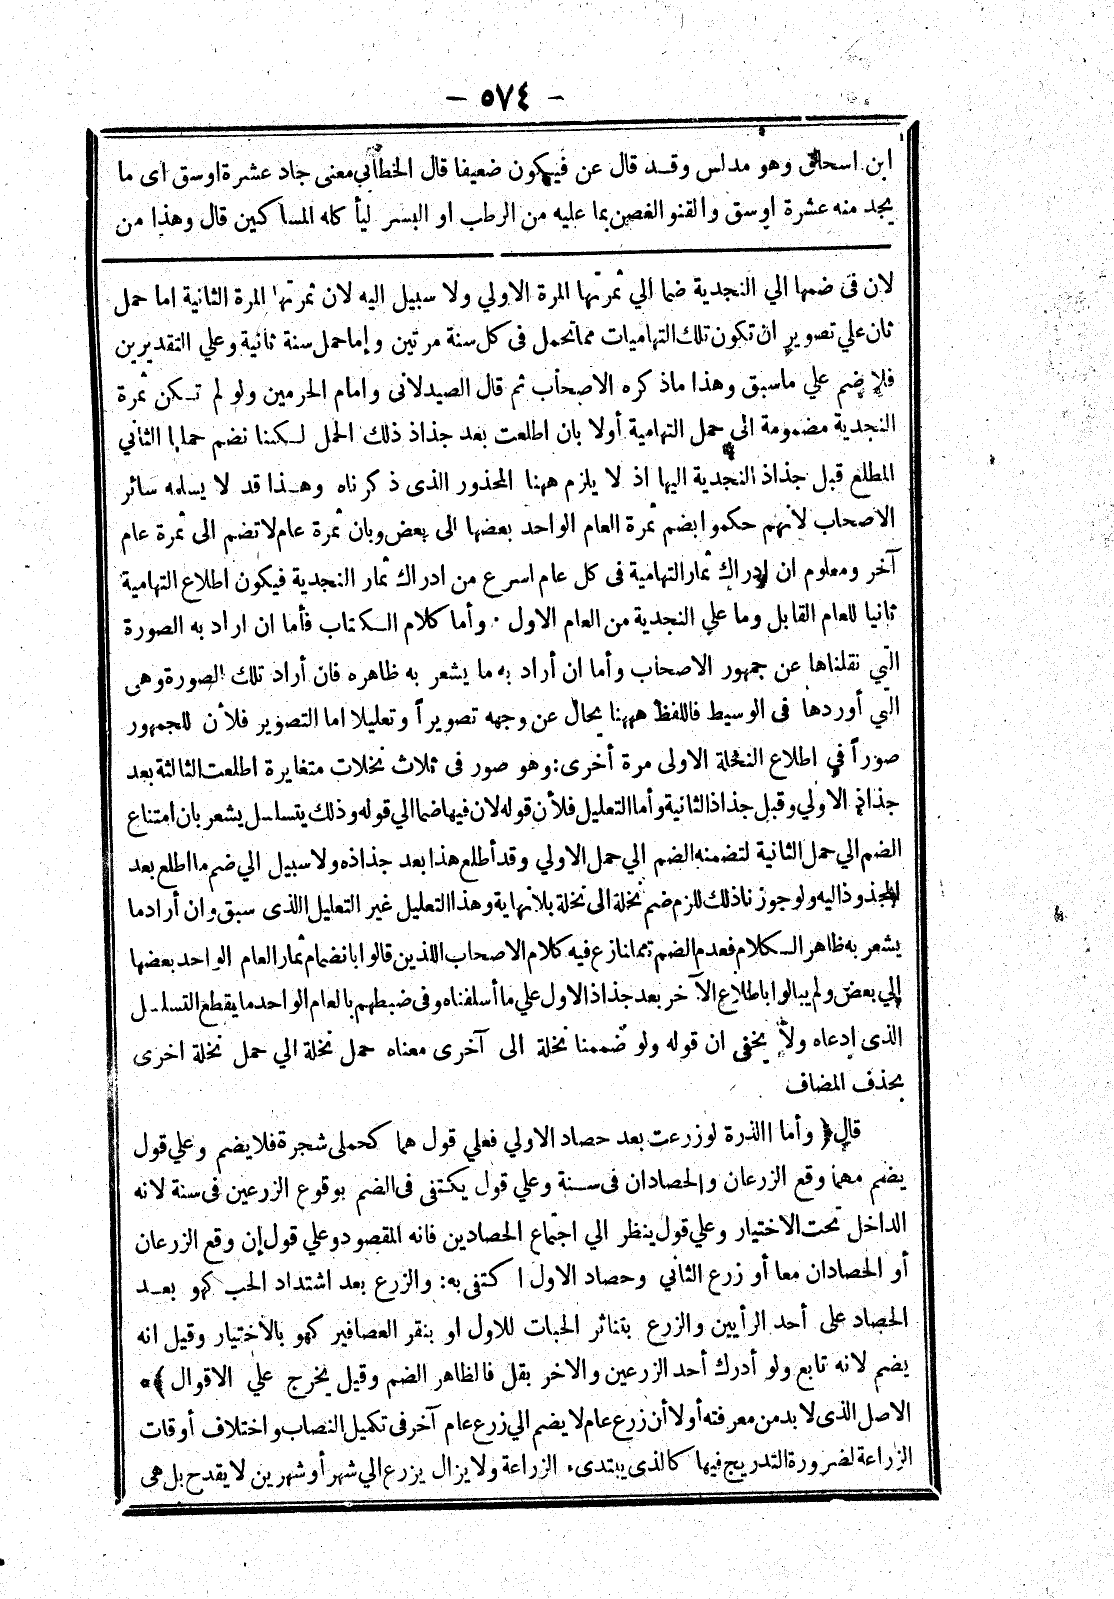 - ٥٧٤ -
ابن اسحاق وهو مدلس وقد قال عن فيكون ضعيفا قال الخطابي معنى جاد عشرة اوسق اى ما
يجد منه عشرة اوسق والقنو الغصن بما عليه من الرطب او البسر ليأكله المساكين قال وهذا من
لان فى ضمها الي النجدية ضما الي ثمرتها المرة الاولي ولا سبيل اليه لان ثمرتها المرة الثانية اما حمل
ثان علي تصوير ان تكون تلك التهاميات مما تحمل فى كل سنة مرتين وإما حمل سنة ثانية وعلي التقديرين
فلا ضم علي ما سبق وهذا ما ذكره الاصحاب ثم قال الصيدلانى وامام الحرمين ولو لم تكن ثمرة
النجدية مضمومة الى حمل التهامية أولا بان اطلعت بعد جذاذ ذلك الحمل لكنا نضم حملها الثاني
المطلع قبل جذاذ النجدية اليها اذ لا يلزم ههنا المحذور الذى ذكرناه وهذا قد لا يسلمه سائر
الاصحاب لأنهم حكموا بضم ثمرة العام الواحد بعضها الى بعض وبان ثمرة عام لا تضم الى ثمرة عام
آخر ومعلوم ان ادراك ثمار التهامية فى كل عام اسرع من ادراك ثمار النجدية فيكون اطلاع التهامية
ثانيا للعام القابل وما علي النجدية من العام الاول ٠ وأما كلام الكتاب فأما ان اراد به الصورة
التي نقلناها عن جمهور الاصحاب وأما ان أراد به ما يشعر به ظاهره فان أراد تلك الصورة وهى
التي أوردها فى الوسيط فاللفظ ههنا يحال عن وجهه تصويراً وتعليلا اما التصوير فلأن للجمهور
صوراً في اطلاع النخلة الاولى مرة أخرى : وهو صور فى ثلاث نخلات متغايرة اطلعت الثالثة بعد
جذاذ الاولي وقبل جذاذ الثانية وأما التعليل فلأن قوله لان فيها ضما الي قوله وذلك يتسلسل يشعر بان امتناع
الضم الي حمل الثانية لتضمنه الضم الي حمل الاولي وقد أطلع هذا بعد جذاذه ولا سبيل الي ضم ما اطلع بعد
المجذوذ اليه ولو جوزنا ذلك للزم ضم نخلة الى نخلة بلا نهاية وهذا التعليل غير التعليل الذى سبق وان أراد ما
يشعر به ظاهر الكلام فعدم الضم مما نازع فيه كلام الاصحاب اللذين قالوا بانضمام ثمار العام الواحد بعضها
إلي بعض ولم يبالوا باطلاع الآخر بعد جذاذ الاول علي ما أسلفناه وفى ضبطهم بالعام الواحد ما يقطع التسلسل
الذى إدعاه ولا يخفى ان قوله ولو ضممنا نخلة الى آخرى معناه حمل نخلة الي حمل نخلة اخرى
بحذف المضاف
قال ﴿ وأما الذرة لو زرعت بعد حصاد الاولي فعلي قول هما كحملى شجرة فلا يضم وعلي قول
يضم مهما وقع الزرعان والحصادان فى سنة وعلي قول يكتفى فى الضم بوقوع الزرعين فى سنة لانه
الداخل تحت الاختيار وعلي قول ينظر الي اجتماع الحصادين فانه المقصود وعلي قول إن وقع الزرعان
أو الحصادان معا أو زرع الثاني وحصاد الاول اكتفى به : والزرع بعد اشتداد الحب كهو بعد
الحصاد على أحد الرأيين والزرع بتناثر الحبات للاول او بنقر العصافير كهو بالاختيار وقيل انه
يضم لانه تابع ولو أدرك أحد الزرعين والاخر بقل فالظاهر الضم وقيل يخرج علي الاقوال ﴾*
الاصل الذى لا بد من معرفته أولا أن زرع عام لا يضم الي زرع عام آخر فى تكميل النصاب واختلاف أوقات
الزراعة لضرورة التدريج فيها كالذى يبتدىء الزراعة ولا يزال يزرع الي شهر أو شهرين لا يقدح بل هى